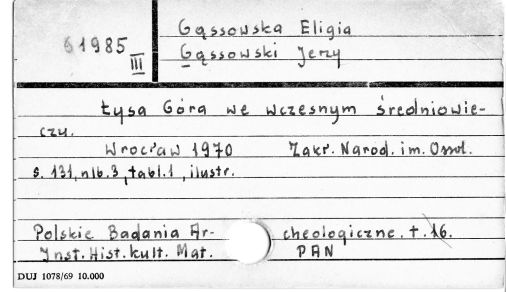 Gąssowska Eligia
61985
III
Gąssowski Jerzy
Łysa Góra we wczesnym średniowie-
czu.
Wrocław 1970 Zakł. Narod. im. Ossol.
s. 131, nlb. 3, tabl. 1, ilustr.
Polskie Badania Ar- cheologiczne. t. 16.
Inst. Hist. kult. Mat. PAN
DUJ 1078/69 10.000